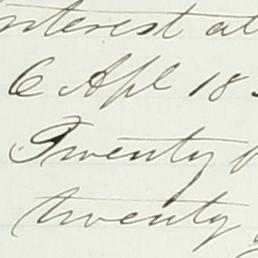 interest at
6 Apl 18
Twenty
twenty